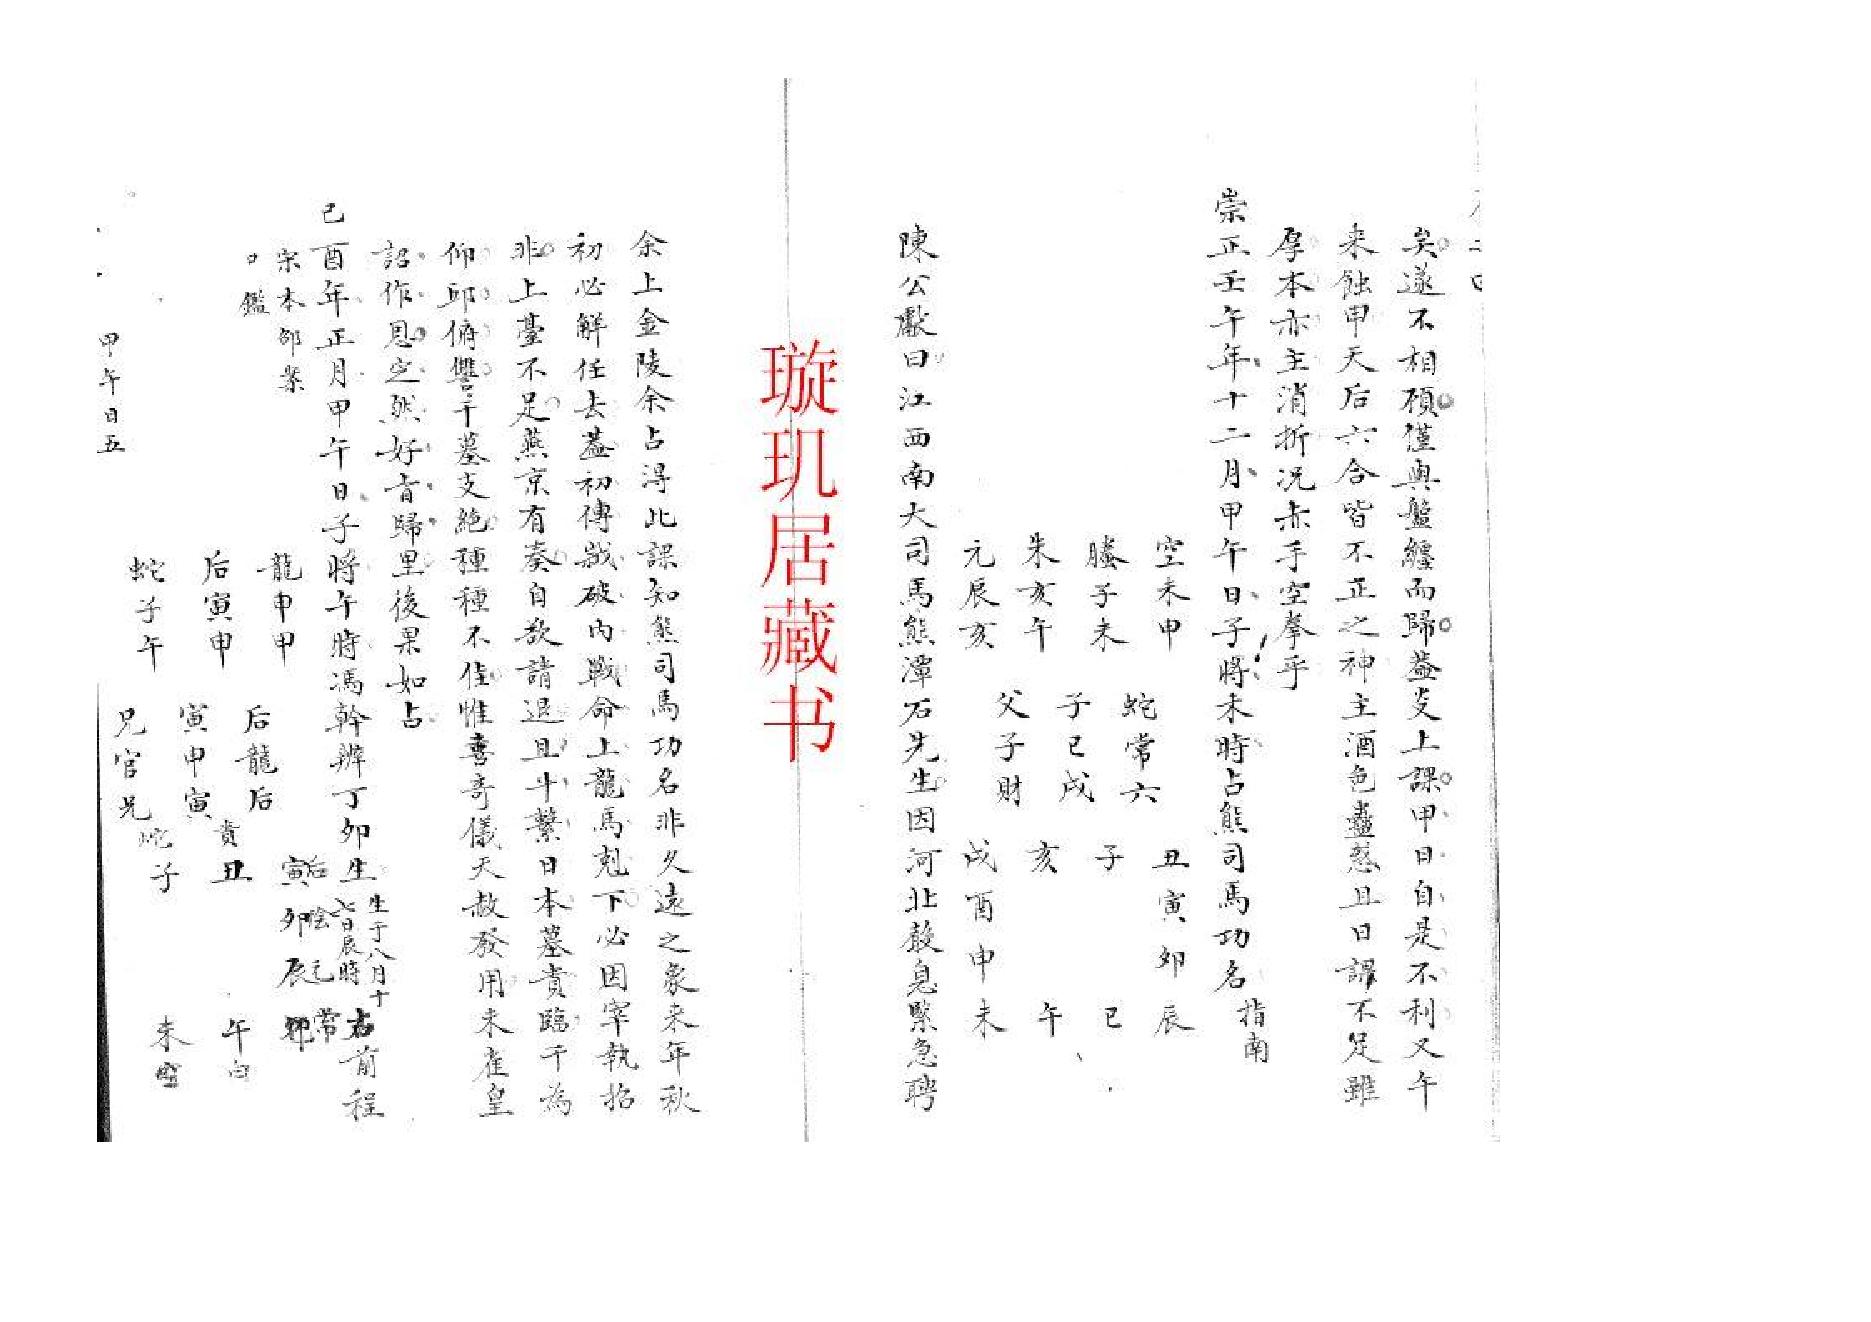 矣遂不相頋僅與盤纏而歸蓋支上課甲日自是不利又午
来蝕甲天后六合皆不正之神主酒色蠱惑且日課不足雖
厚本亦主消折况赤手空拳乎
崇正壬午年十二月甲午日子將未時占熊司馬功名
指南
空未申
螣子未
朱亥午
元辰亥
蛇常六
子巳戌
父子財
丑寅卯辰
子巳
亥午
戌酉申未
陳公獻曰江西南大司馬熊潭石先生因河北殽息緊急聘
璇玑居藏书
余上金陵余占淂此課知熊司馬功名非久遠之象来年秋
初必解任去蓋初傳戕破内戰命上龍馬尅下必因宰執招
非上臺不足燕京有奏自欲請退且斗繫日本墓貴臨干為
仰邱俯讐干墓支絶種種不佳惟喜奇儀天赦發用未雀皇
詔作恩之然好音歸里後果如占
己酉年正月甲午日子將午時馮幹辨丁卯生
生于八月十
七日辰時
占前程
宋本邵案
鑑
龍申甲
后寅申
蛇子午
后龍后
寅申寅
兄官兄
后寅
陰卯
元辰
常
貴丑
午白
蛇子
未空
甲午日五